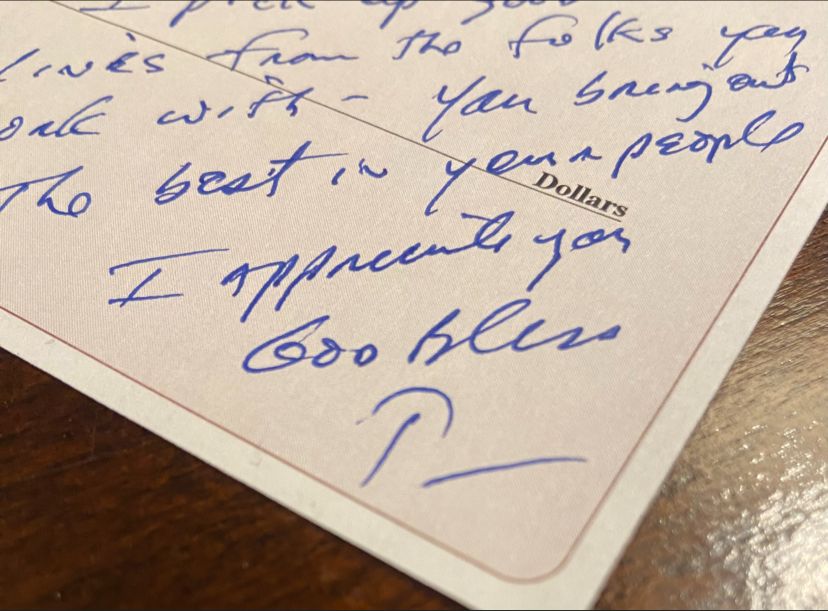 I pick up good
lines from the folks you
ork with - you bring out
The best in your people
Dollars
I appreciate you
God Bless
P